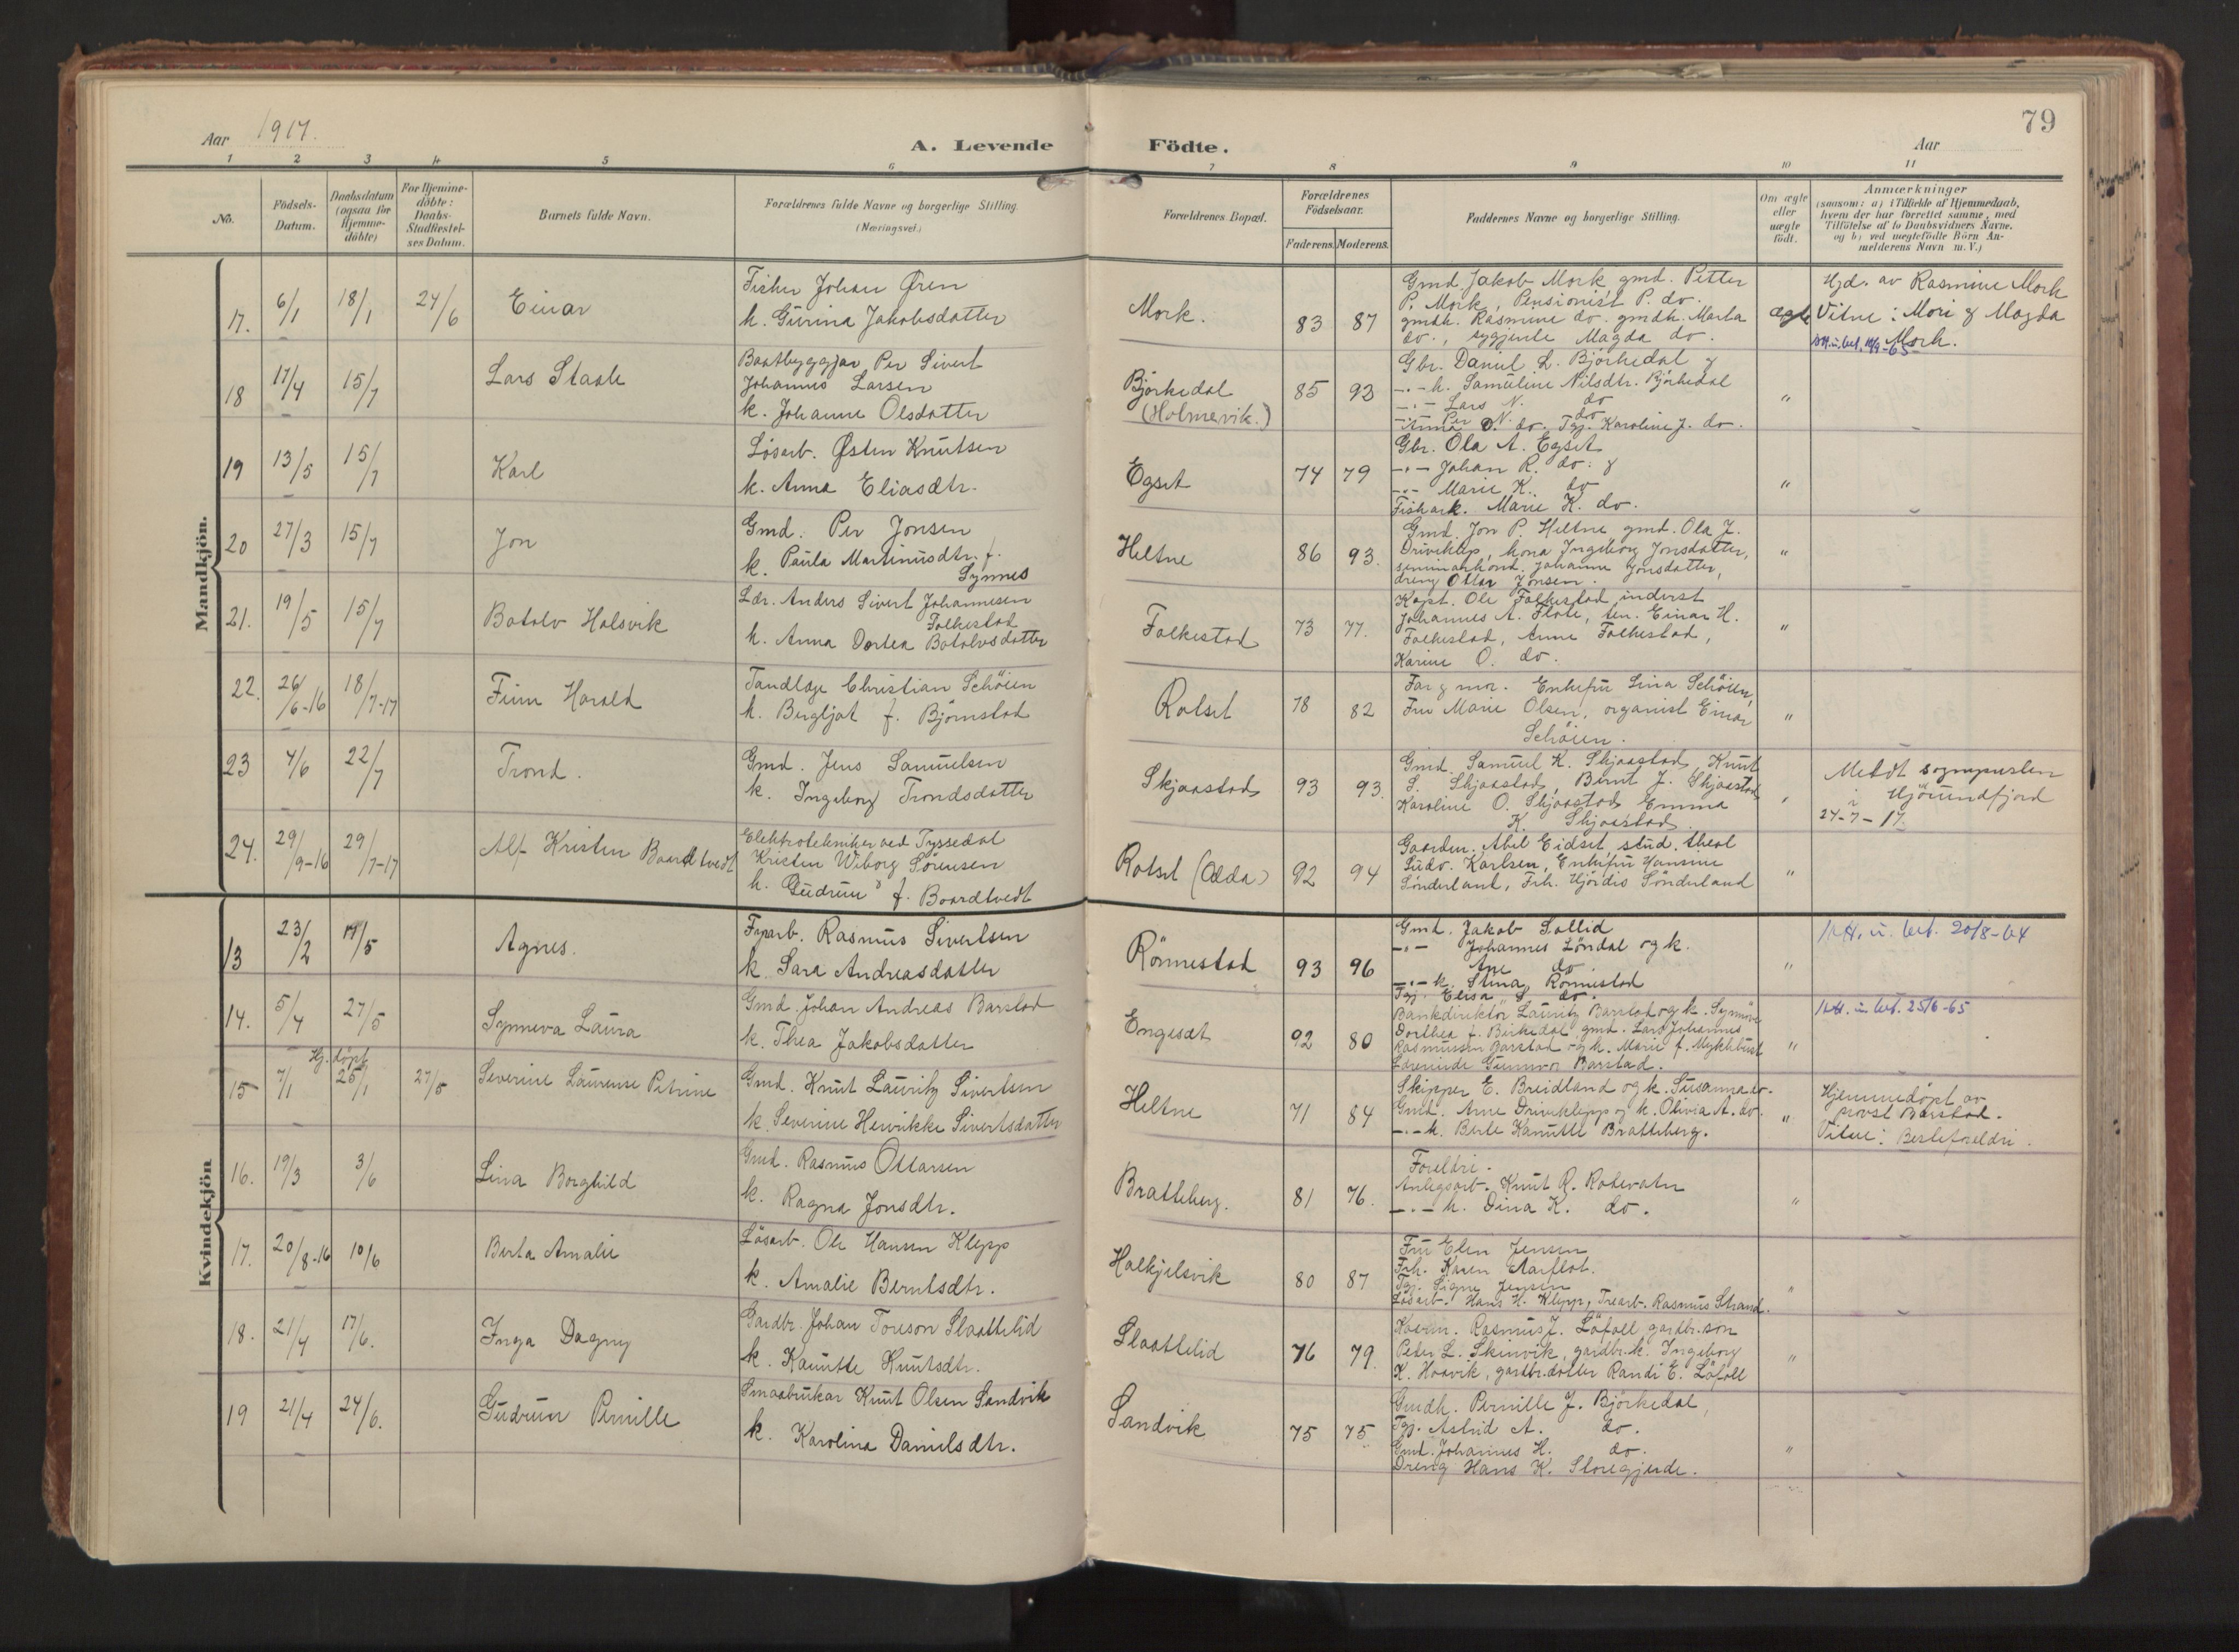 79
Aar 1917.
A. Levende Födte.
Aar
1 2 3 4 5 6 7 8 9 10 11
No.
Födsels-
Datum.
Daabsdatum
(ogsaa for
Hjemme-
döbte)
For Hjemme-
döbte:
Daabs-
Stadfæstel-
ses Datum.
Barnets fulde Navn.
Forældrenes fulde Navne og borgerlige Stilling.
(Næringsvei.)
Forældrenes Bopæl.
Forældrenes
Födselsaar.
Faderens. Moderens.
Faddernes Navne og borgerlige Stilling.
Om ægte
eller
uægte
født.
Anmærkninger
(saasom: a) i Tilfælde af Hjemmedaab,
hvem der har forrettet samme, med
Tilföielse af to Daabsvidners Navne,
og b) ved uægtefödte Börn An-
melderens Navn m. V.)
Mandkjön.
17. 6/1 18/1 24/6 Einar
Fisker Johan Øren
k. Gurina Jakobsdatter
Mork. 83 87
Gmd. Jakob Mork, gmd. Petter
P. Mork, Pensionist P. do.
gmdk. Rasmine do. gmdk. Marta
do., sygjente Magda do.
ægte
Hjd. av Rasmine Mork
Vitne: Mori & Magda
Mork.
18 17/4 15/7 Lars Staale
Baatbyggjar Per Sivert
Johannes Larsen
k. Johanne Olsdatter
Björkedal
(Holmevik.)
85 93
Gbr. Daniel L. Björkedal &
-"- k. Samueline Nilsdtr. Björkedal
-"- Lars N. do
-"- Per N. do
Anna O. do. Tgj. Karoline J. do.
"
19 13/5 15/7 Karl
Lösarb. Østen Knutsen
k. Anna Eliasdtr.
Egset 74 79
Gbr. Ola A. Egset
-"- Johan R. do. &
-"- Marie K. do
Fiskark. Marie K. do.
"
20 27/3 15/7 Jon
Gmd. Per Jonsen
k. Paula Martinusdtr. f.
Synnes
Heltne 86 93.
Gmd. Jon P. Heltne gmd. Ola J.
Driveklep, kona Ingeborg Jonsdatter,
Johanne Jonsdatter,
dreng Ottar Jonsen.
"
21. 19/5 15/7 Botolv Halsvik
Lær. Anders Sivert Johannesen
Folkestad
k. Anna Dortea Botolvsdatter
Folkestad 73 77.
Kapt. Ole Folkestad inderst
Johannes A. Flote, ten. Einar H.
Folkestad, Anne Folkestad,
Karine O. do.
"
22. 26/6-16 18/7-17 Finn Harald
Tandlæge Christian Schöien
k. Bergljot f. Björnstad
Rotset 78 82
Far & mor. Enkefru Lina Schöien,
Fru Marie Olsen, organist Einar
Schöien.
"
23 4/6 22/7 Trond.
Gmd. Jens Samuelsen
k. Ingeborg Trondsdatter
Skjaastad 93 93.
Gmd. Samuel K. Skjaastad, Knut
S. Skjaastad, Bernt J. Skjaastad
Karoline O. Skjaastad Emma
K. Skjaastad.
"
Meldt sognepresten
i Hjörundfjord
24-7-17.
24. 29/9-16 29/7-17 Alf Kristen Baardtvedt
Elektrotekniker ved Tyssedal
Kristen Wiborg Sörensen
k. Gudrun f. Baardtvedt
Rotset (Odda) 92 94
Gaarden. Abel Eidset, stud. theol
Ludv. Karlsen, Enkefru Hansine
Sönderland, Frk. Hjördis Sönderland
"
Kvindekjön.
13 23/2 17/5 Agnes.
Fyarb. Rasmus Sivertsen
k. Sara Andreasdatter
Rönnestad 93 96
Gmd. Jakob Sollid
-"- Johannes Löndal og k.
Ane do
-"- k. Stina Rönnestad
Tgj. Elisa S do.
"
14. 5/4 27/5 Synneva Laura
Gmd. Johan Andreas Barstad
k. Thea Jakobsdatter
Engeset 92 80
Bankdirektör Lauritz Barstad og k. Synnöve
Dorthea f. Birkedal gmd. Lars Johannes
Rasmussen Barstad og k. Marie f. Myklebust
Lærerinde Gunnvor Barstad.
"
15 Hj. döpt
7/1 25/1 27/5 Severine Laurense Petrine
Gmd. Knut Lauritz Sivertsen
k. Severine Henrikke Sivertsdatter
Heltne 71 84
Skipper E. Breidland og k. Susanna do.
Gmd. Arne Driveklepp og k. Olivia A. do.
-"- k. Berte Kanutte Bratteberg.
"
Hjemmedöpt av
provst Barstad.
Vitne: Besteforeldri.
16. 19/3 3/6 Lina Borghild
Gmd. Rasmus Ottarsen
k. Ragna Jonsdtr.
Bratteberg. 81 76.
Foreldri.
Anlegsarb. Knut R. Rotevatn
-"- k. Dina K. do.
"
17. 20/8-16 10/6 Berta Amalie
Lösarb. Ole Hansen Klepp
k. Amalie Berntsdtr.
Halkjelsvik 80 87
Fru Elen Jensen
Frk. Karen Aarflot.
Tgj. Signe Jensen
Lösarb. Hans H. Klepp, Trearb. Rasmus Strand.
"
18. 21/4 17/6. Inga Dagny
Gardbr. Johan Toreson Slaattelid
k. Kanutte Knutsdtr.
Slaattelid 76 79.
Rasmus J. Löfoll gardbr.son
Peter L. Skinvik, gardbr.k. Ingeborg
K. Haavik, gardbr.dotter Randi E. Löfoll
"
19 21/4 24/6. Gudrun Pernille
Smaabrukar Knut Olsen Sandvik
k. Karolina Danielsdtr.
Sandvik 75 75
Gmdk. Pernille J. Björkedal,
Tgj. Astrid A. do.
Gmd. Johannes H. do.
Dreng Hans K. Storegjerde.
"